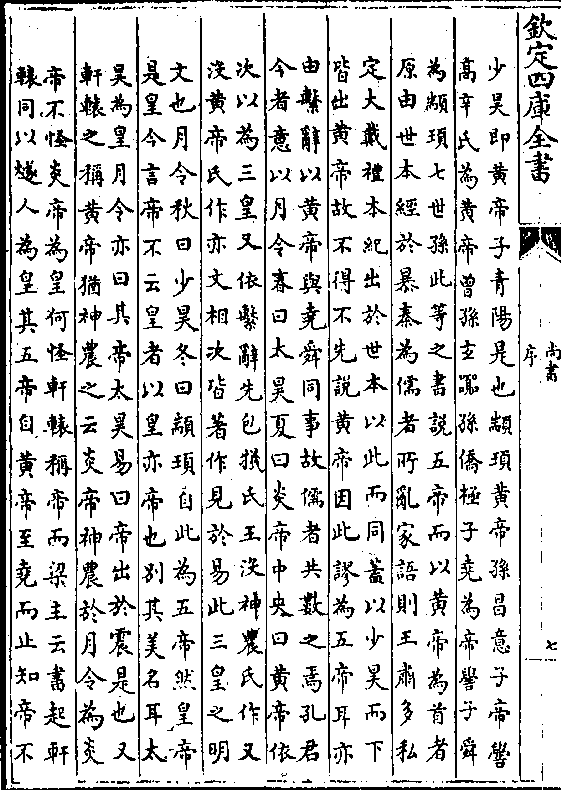 欽定四庫全書
尚書序
七
少昊即黄帝子青陽是也顓頊黄帝孫昌意子帝嚳
高辛氏為黄帝曾孫玄囂孫僑極子堯為帝嚳子舜
為顓頊七世孫此等之書說五帝而以黄帝為首者
原由世本經於暴秦為儒者所亂家語則王肅多私
定大戴禮本紀出於世本以此而同蓋以少昊而下
皆出黄帝故不得不先説黄帝因此謬為五帝耳亦
由繫辭以黄帝與堯舜同事故儒者共數之焉孔君
今者意以月令春曰太昊夏曰炎帝中央曰黄帝依
次以為三皇又依繫辭先包犧氏王沒神農氏作又
沒黄帝氏作亦文相次皆著作見於易此三皇之明
文也月令秋曰少昊冬曰顓頊自此為五帝然皇帝
是皇今言帝不云皇者以皇亦帝也别其美名耳太
昊為皇月令亦曰其帝太昊易曰帝出於震是也又
軒轅之稱黄帝猶神農之云炎帝神農於月令為炎
帝不怪炎帝為皇何怪軒轅稱帝而梁主云書起軒
轅同以燧人為皇其五帝自黄帝至堯而止知帝不